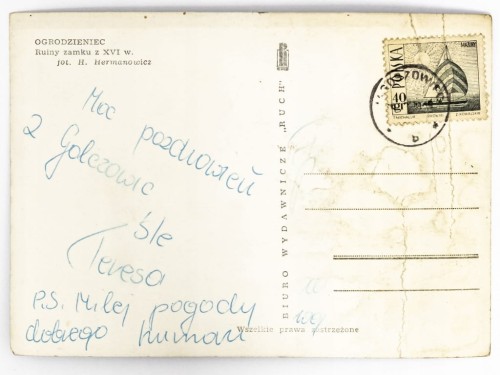 OGRODZIENIEC
Ruiny zamku z XVI w.
fot. H. Hermanowicz
Moc pozdrowień
z Golczowic
śle
Teresa
P.S. Miłej pogody
dobrego humoru
BIURO WYDAWNICZE „RUCH"
Wszelkie prawa zastrzeżone
POLSKA
40